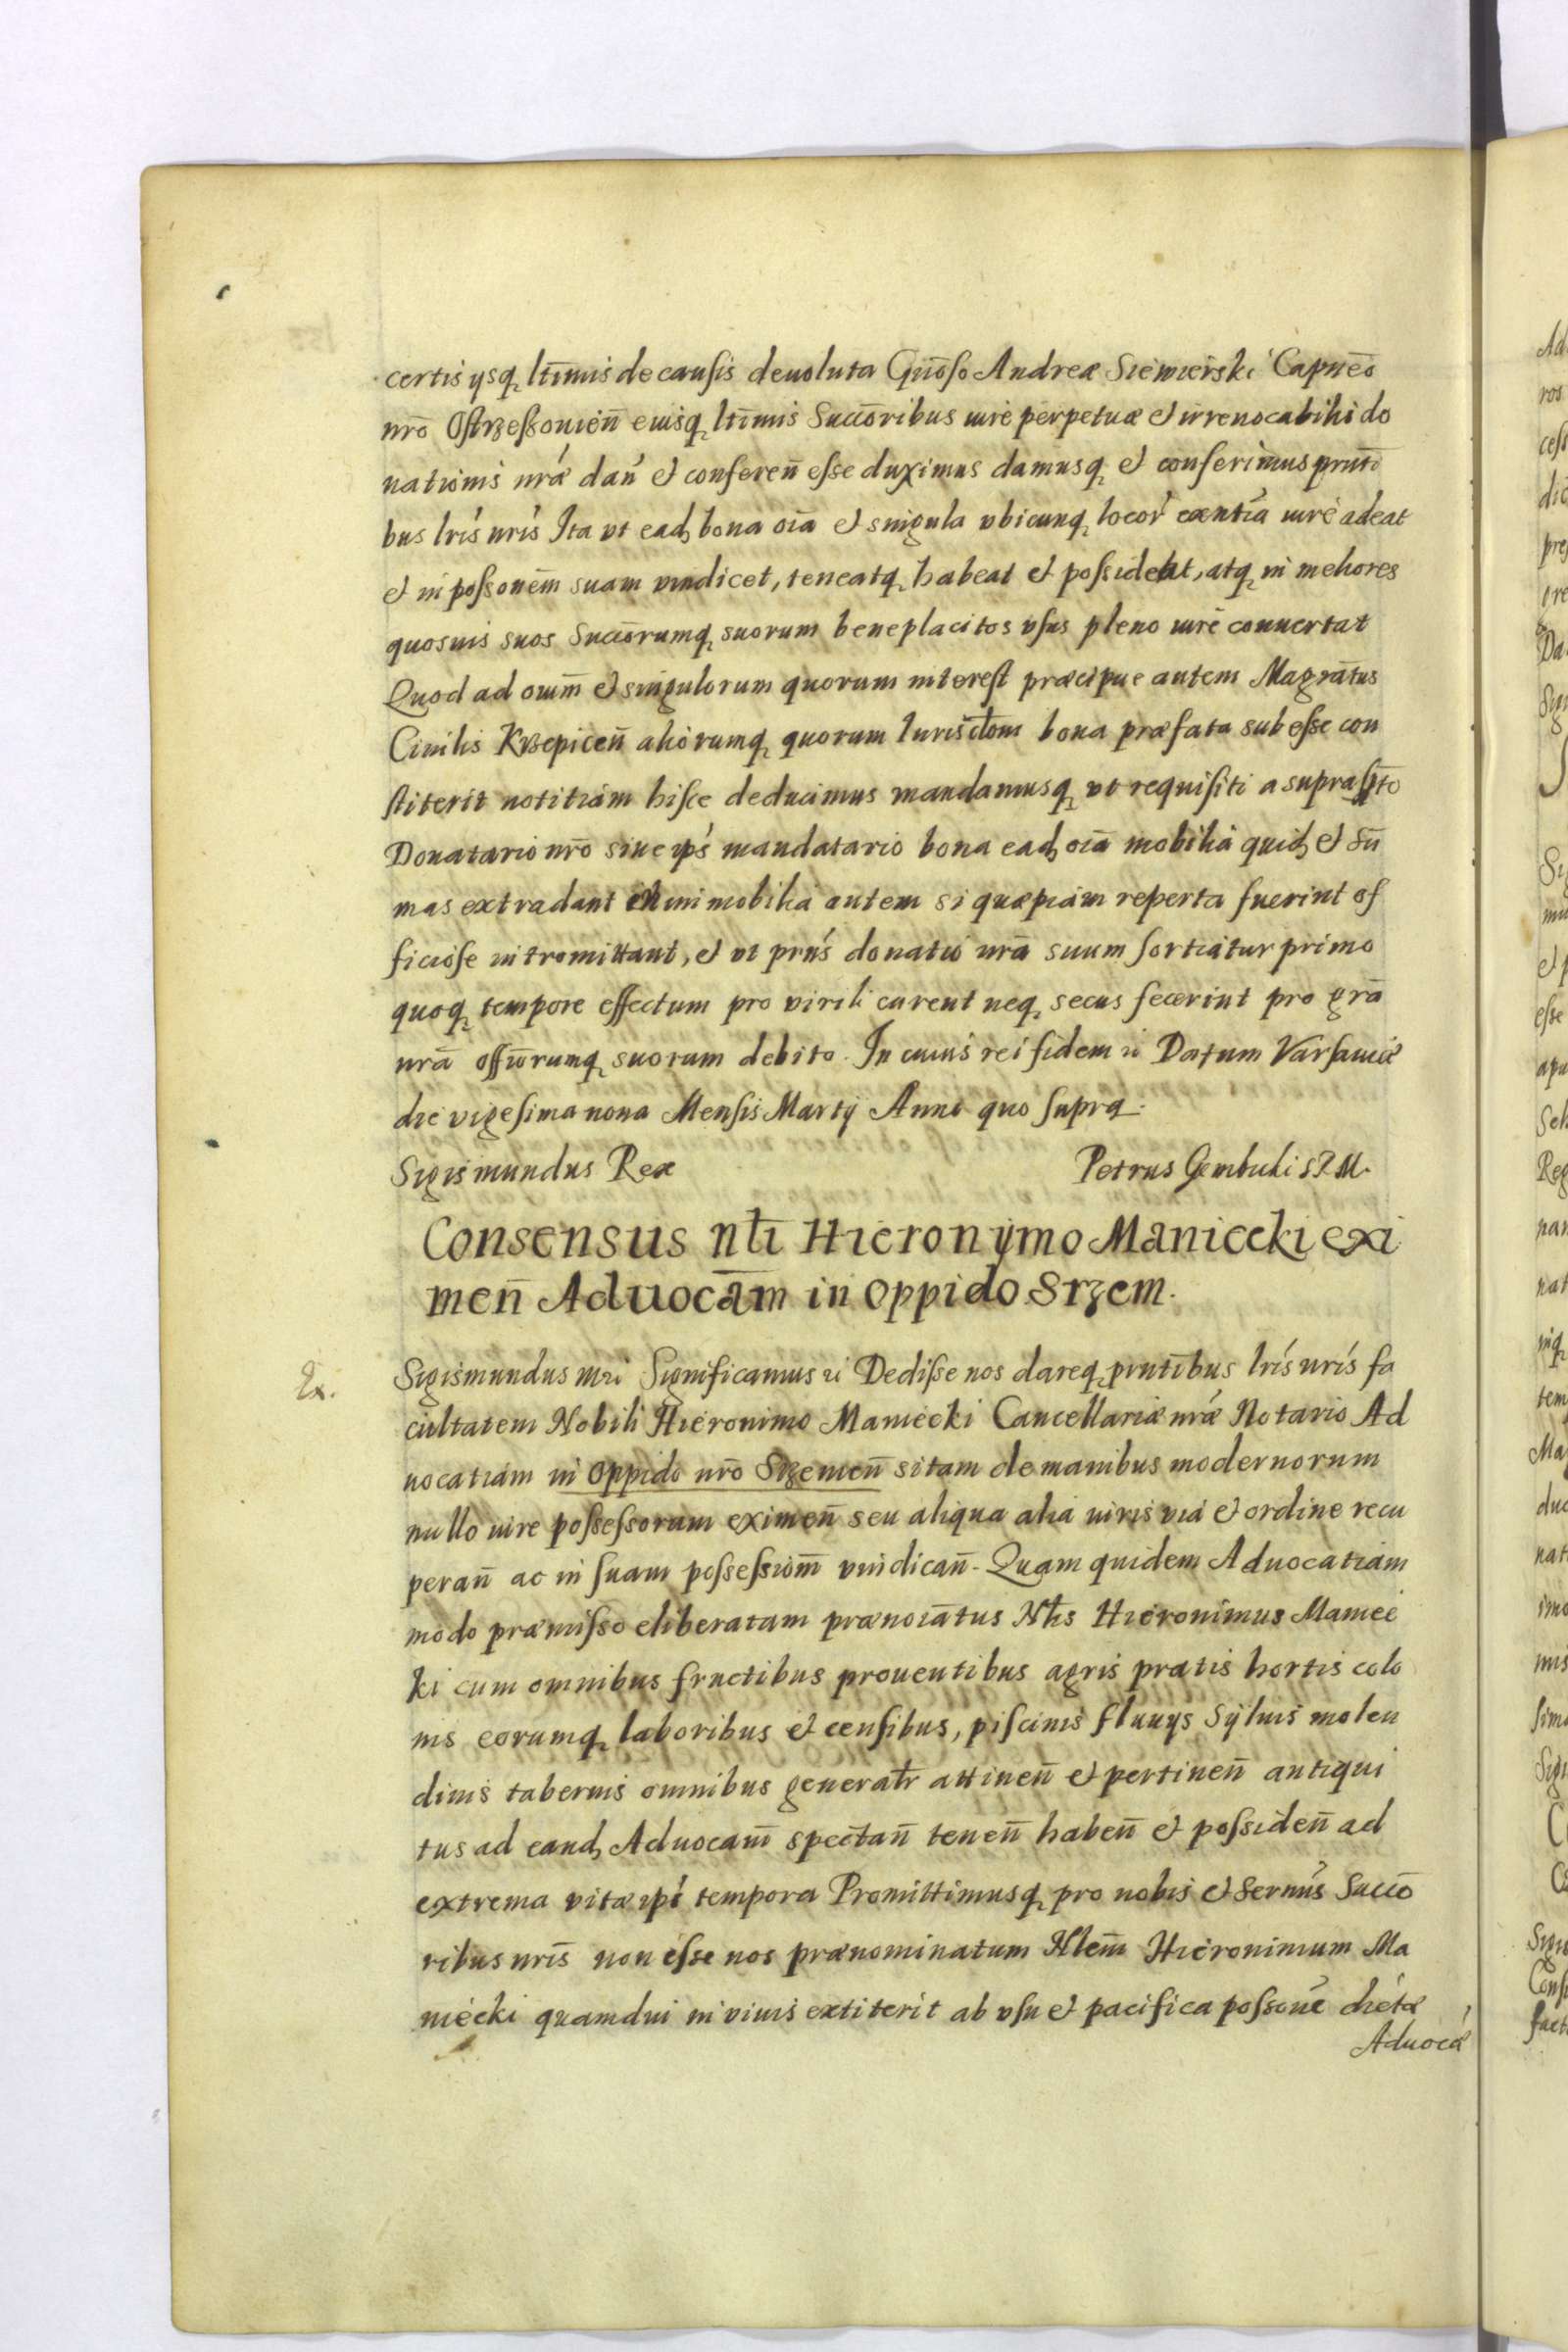 certis ysq ltimis de causis deuoluta Gn̄oso Andreæ Siewierski Capneō
nrō Ostrzeszouien̄ eiusq ltīmis Succōribus iure perpetuæ et irreuocabilis do
nationis nrǽ dan̄ et conferen̄ esse duximus damusq et conferimus prntī
bus lrís nrís Ita vt ead, bona oīa et singula vbicunq locor̄ exn̄tia iure adeat
et in possonēm suam vindicet, teneatq habeat et possideat, atq in meliores
quosuis suos Succōrumq suorum beneplacitos vsus pleno iure conuertat
Quod ad oium̄ et singulorum quorum interest præcipue autem Magrātus
Ciuilis Krzepicen̄ aliorumq quorum Iurisdtōni bona præfata subesse con
stiterit notitiam hisce deducimus mandamusq vt requisiti a suprasptō
Donatario nrō siue ips mandatario bona ead, oīa mobilia quid, et sū
mas extradant in immobilia autem si quæpiam reperta fuerint of
ficiose intromittant, et vt prn̄s donatio nrā suum sortiatur primo
quoq tempore effectum pro virili curent neq secus fecerint pro grā
nrā officiorumq suorum debito. In cuius rei fidem &c Datum Varsauiæ
die vigesima nona Mensis Martij Anno quo supra.
Sigismundus Rex Petrus Gembicki S.R.M.
Consensus nlī Hieronymo Maniecki exi
men̄ Aduocām in oppido Srzem.
Ex.
Sigismundus III &c Significamus &c Dedisse nos dareq prntībus lrís nrís fa
cultatem Nobili Hieronimo Maniecki Cancellariæ nrǽ Notario Ad
uocatiam in oppido nrō Srzemen̄ sitam de manibus modernorum
nullo iure possessorum eximen̄ seu aliqua alia iuris via et ordine recu
peran̄ ac in suam possessiom̄ vindican̄. Quam quidem Aduocatiam
modo præmisso eliberatam prænoīatus Nlis Hieronimus Maniec
ki cum omnibus fructibus prouentibus agris pratis hortis colo
nis eorumq laboribus et censibus, piscinis fluuys Syluis molen
dinis tabernis omnibus generalr̄ attinen̄ et pertinen̄ antiqui
tus ad eand, Aduocam̄ spectan̄ tenen̄ haben̄ et possiden̄ ad
extrema vitæ ipī tempora Promittimusq pro nobis et Sernm̄s Succō
ribus nrīs non esse nos prænominatum Nlem̄ Hieronimum Ma
niecki quamdiu in viuis extiterit ab vsu et pacifica possonē dictæ
Aduocǽ